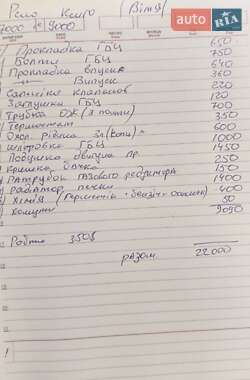 AUTO RIA
Рено Кенго (Вітя)
9000
Прокладка ГБЦ 650
Болти ГБЦ 750
Прокладка впуск 640
Випуск 360
Сальніки клапанов 220
Заглушки ГБЦ 120
Трубка ОЖ (з пошти) 700
Термостат 350
Охол. рідина 600
шліфовка ГБЦ 1000
Подушка двигуна пр. 1450
Кришка бачка 250
Патрубок газового редуктора 150
Радіатор печки 1400
Хімія (герметик + бензін + 400
Хомути 50
9090
Робота 350$
разом 22000